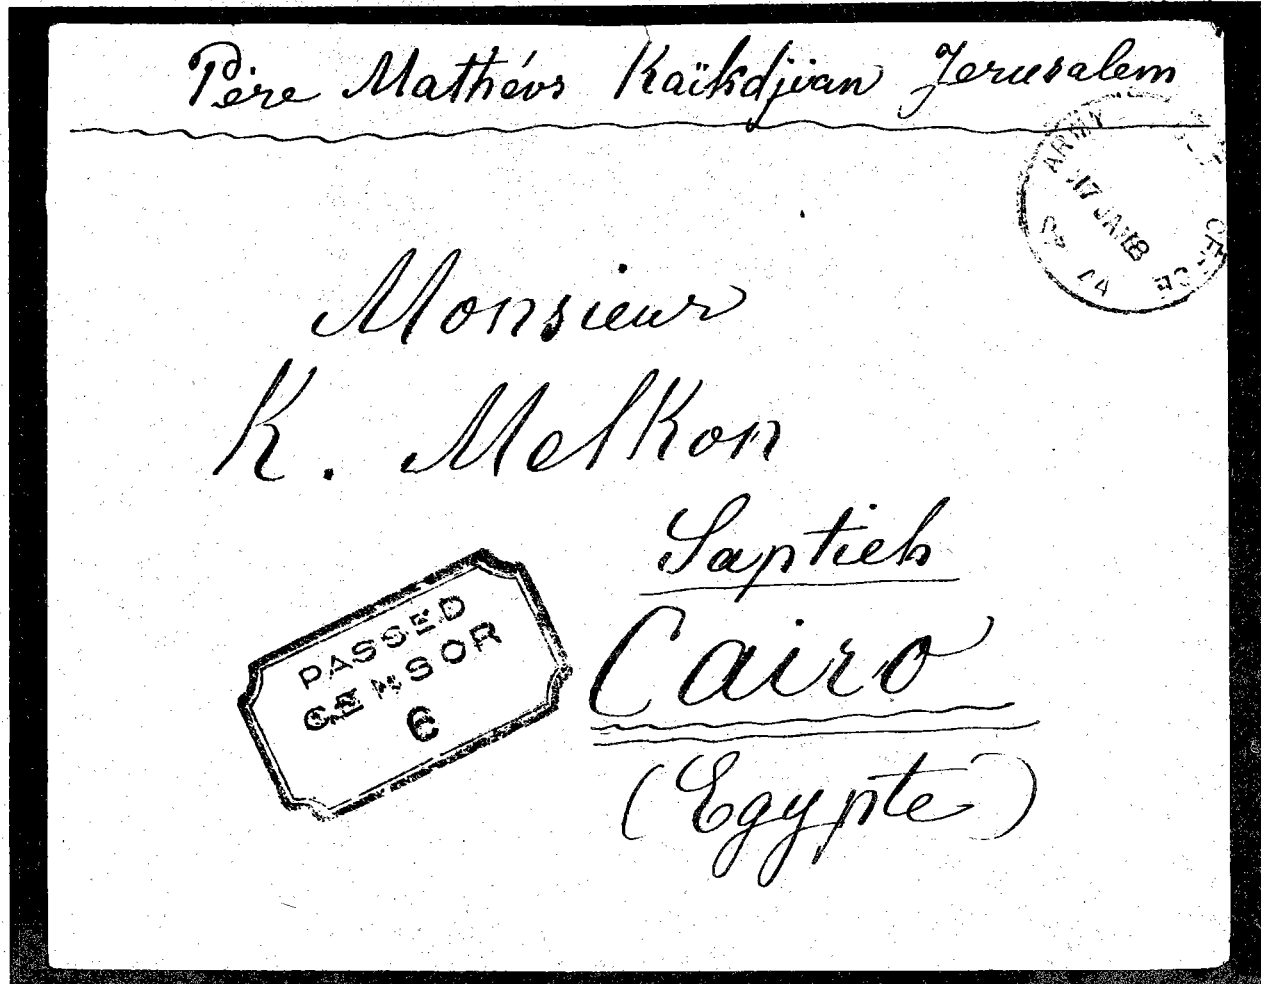 Père Mathéos Kaïkdjian Jerusalem
ARMY
17 JA 18
Monsieur
K. Melkon
Saptieh
Cairo
(Egypte)
PASSED
CENSOR
6